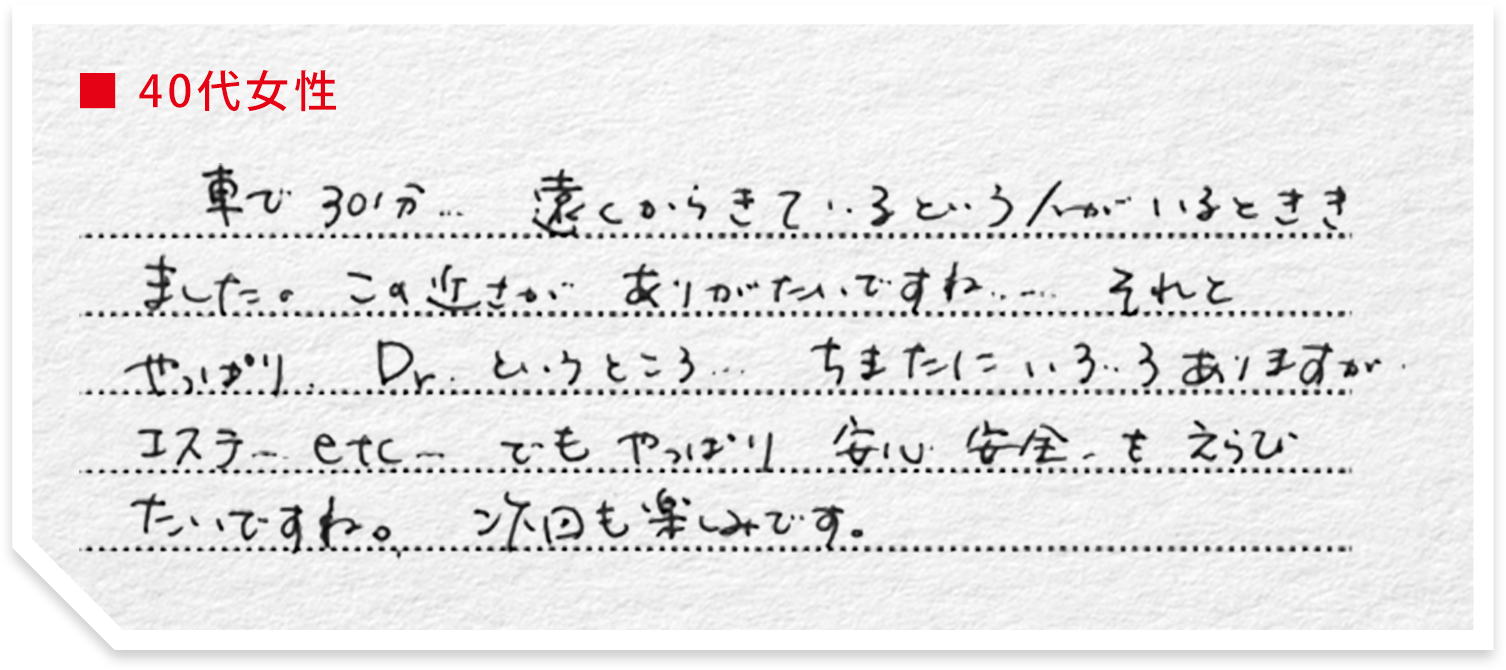 ■ 40代女性
車で30分… 遠くからきているという人がいるときき
ました。この近さが ありがたいですね…… それと
やっぱり. Dr. というところ… ちまたにいろいろありますが
エステ… etc… でもやっぱり 安心 安全 を えらび
たいですね。 次回も楽しみです。